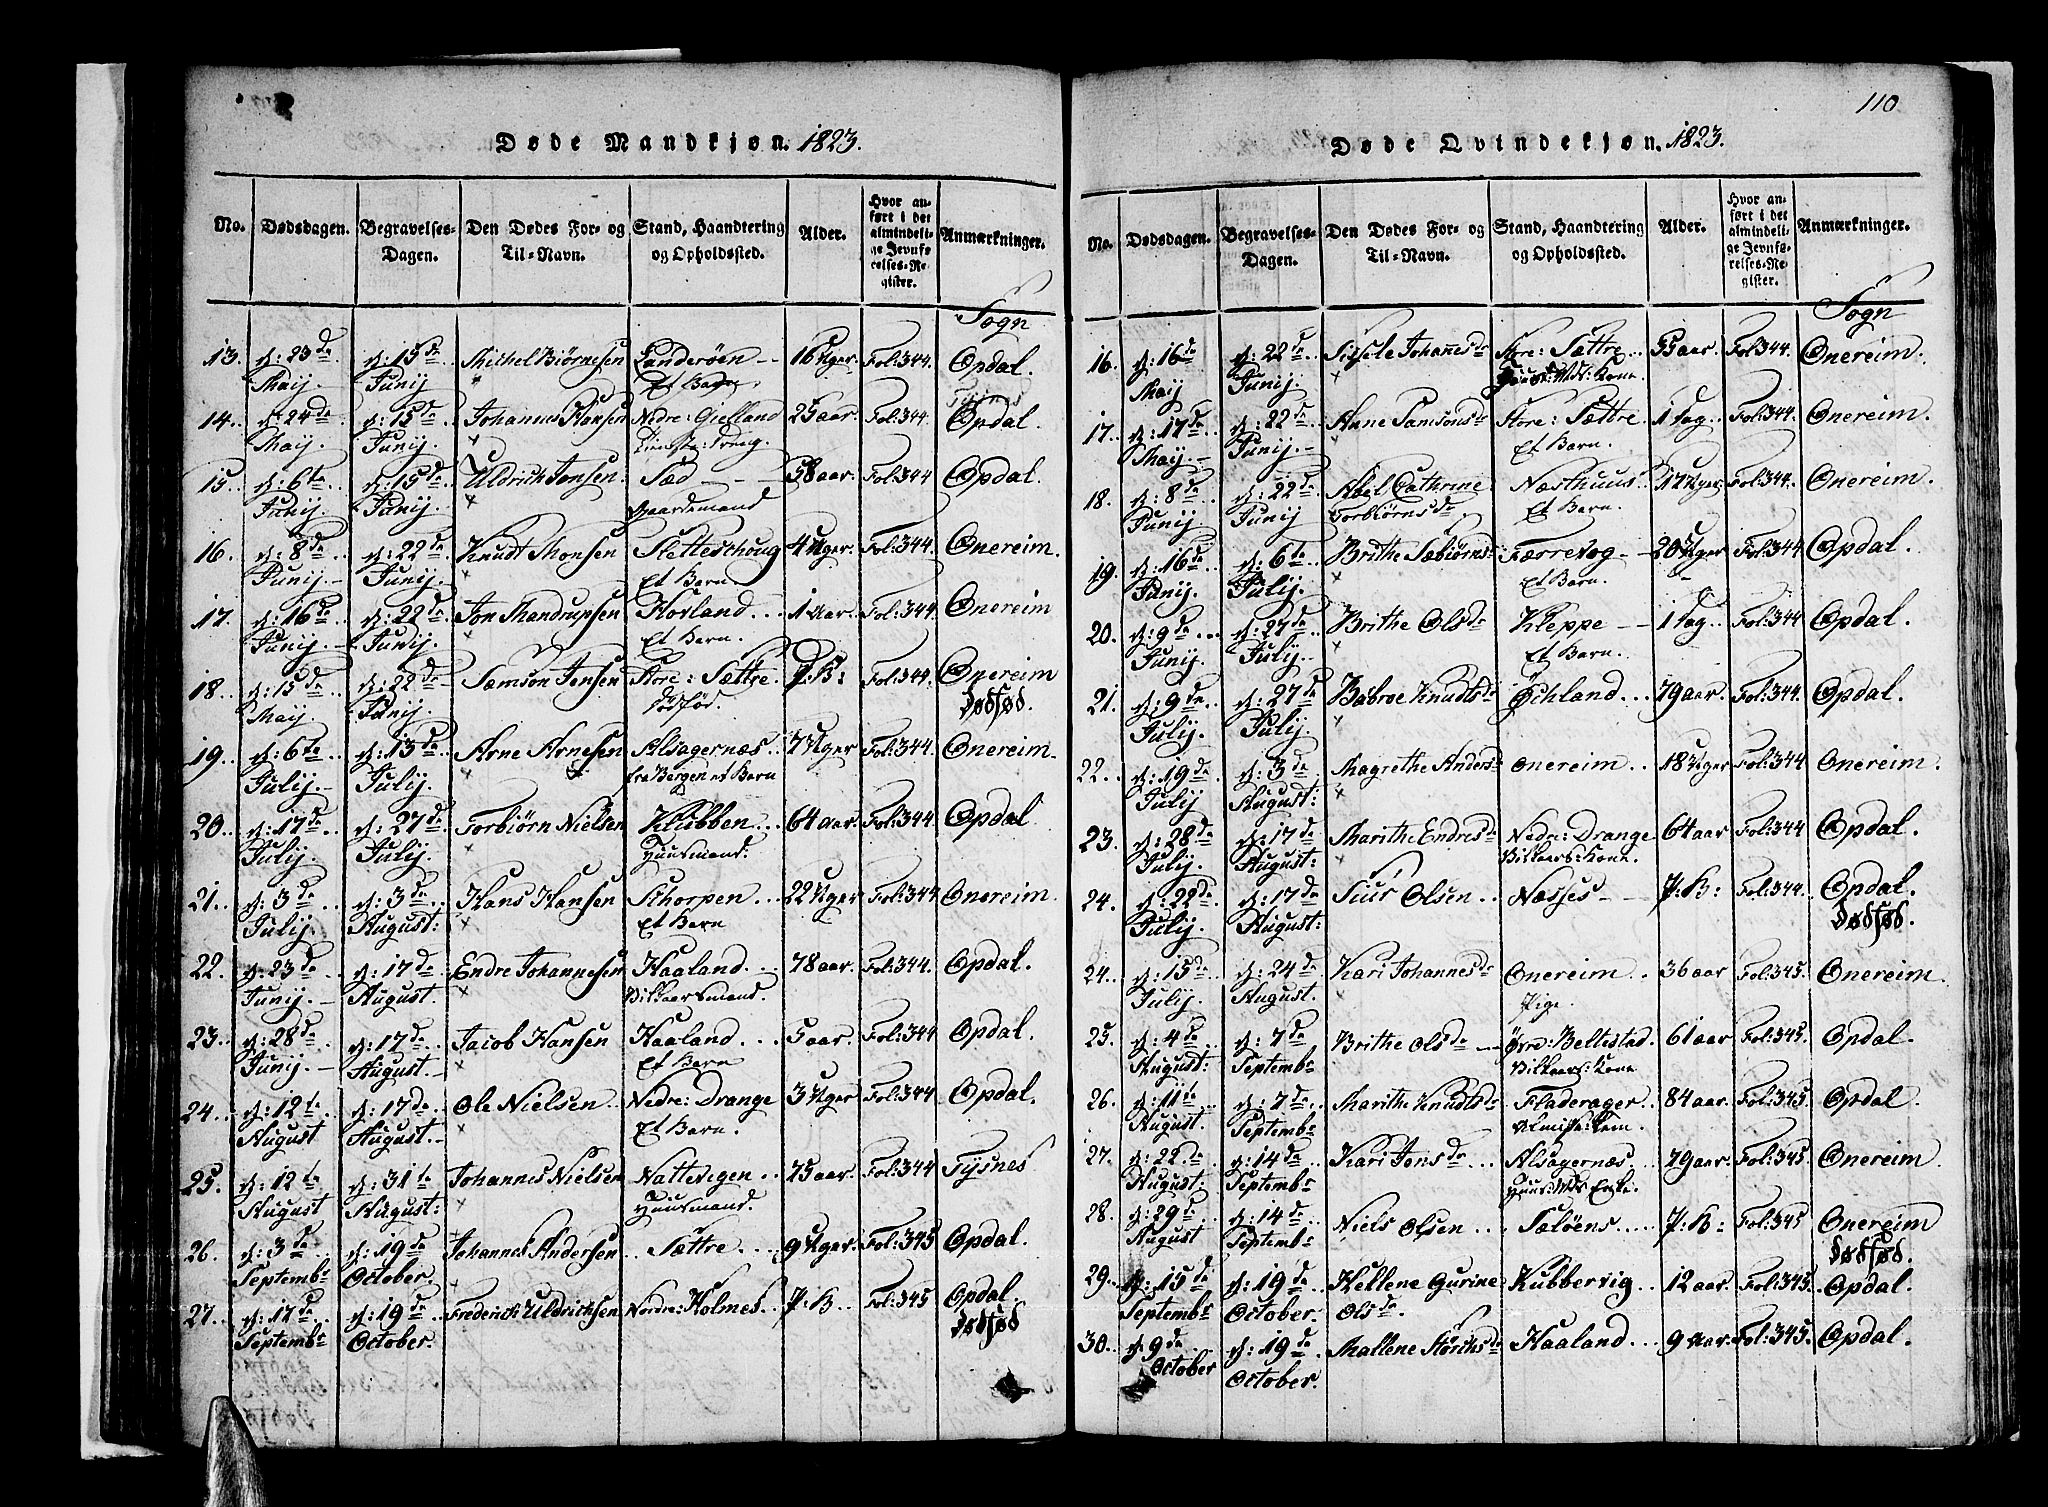 Døde Mandkjøn. 1823.
No. Dødsdagen. Begravelses-Dagen. Den Dødes For- og Til-Navn. Stand, Haandtering og Opholdssted. Alder. Hvor anført i det almindelige Jevnførelses-Register. Anmærkninger.
Sogn
13. d: 23de d: 15de Michel Biørnesen Sanderøen 16 Uger. Fol:344. Opdal.
Maij. Junij Et Barn
Tysnes
14. d: 24de d: 15de Johannes Hansen Nedre: Gielland 25 aar. Fol:344. Opdal
Maij. Junij
15. d: 6te d: 15de Uldrich Jonsen Sæd 58 aar. Fol:344 Opdal.
Junij. Junij. Gaardemand
16. d: 8de d: 22de Knudt Monsen Sletteschoug 4 Uger. Fol:344. Onereim.
Junij. Junij. Et Barn
17. d: 16de d: 22de Jon Mandrupsen Hovland 1 Aar. Fol:344 Onereim
Junij. Junij. Et Barn.
18. d: 15de d: 22de Samson Jensen Store: Sættre. P: K: Fol:344. Onereim
Maij. Junij. Dødfød Dødfød.
19. d: 6te d: 13de Arne Arnesen Alsagernæs 7 Uger Fol:344. Onereim.
Julij. Julij. fra Bergen et Barn
20. d: 17de d: 27de Torbiørn Nielsen Klubben 64 aar. Fol:344 Opdal
Julij. Julij. Huusmand.
21. d: 3de d: 3de Hans Hansen Schorpen 22 Uger Fol:344 Onereim.
Julij. August: Et Barn
22. d: 23de d: 17de Endre Johannesen Haaland 78 aar. Fol:344. Opdal.
Junij. August. Vilkaarsmand.
23. d: 28de d: 17de Jacob Hansen Haaland 5 aar Fol:344 Opdal.
Junij. August. Et Barn
24. d: 12te d: 17de Ole Nielsen Nedre: Drange 3 Uger Fol:344 Opdal.
August August. Et Barn.
25. d: 12te d: 31te Johannes Nielsen Nattevigen 75 aar. Fol:344 Tysnes
August August: Huusmand.
26. d: 3de d: 19de Johannes Andersen Sættre 9 Uger. Fol:345 Opdal.
Septembr October.
27. d: 17de d: 19de Frederich Uldrichsen Nordre: Holmes P: K Fol:345 Opdal.
Septembr October. Dødfød
110
Døde Qvindekjøn. 1823.
No. Dødsdagen. Begravelses-Dagen. Den Dødes For- og Til-Navn. Stand, Haandtering og Opholdssted. Alder. Hvor anført i det almindelige Jevnførelses-Register. Anmærkninger.
Sogn
16. d: 16de d: 22de Sidsele Johannesdr Store: Sættre 55 aar. Fol:344. Onereim.
Maij Junij. Huus: Mds: Kone.
17. d: 17de d: 22de Anne Samsonsdr Store: Sættre 1 Dag. Fol:344. Onereim.
Maij. Junij. Et Barn.
18. d: 8de d: 22de Abel Cathrine Næsthuus 17 Uger Fol:344. Onereim.
Junij. Junij Torbiørnsdr Et Barn.
19. d: 16de d: 6te Brithe Sæbiørnsdr Færrevog 20 Uger Fol:344 Opdal.
Junij. Julij. Et Barn.
20. d: 9de d: 27de Brithe Olsdr Kleppe 1 Dag. Fol:344 Opdal.
Junij. Julij. Et Barn.
21. d: 9de d: 27de Babroe Knudtsdr Øchland 79 aar. Fol:344. Opdal.
Julij. Julij.
22. d: 19de d: 3de Magrethe Andersdr Onereim 18 Uger Fol:344 Onereim.
Julij August:
23. d: 28de d: 17de Marithe Endresdr Nedre: Drange 64 aar Fol:344 Opdal.
Julij. August. Vilkaars: Kone.
24. d: 22de d: 17de Siur Olsen Næsses P: K: Fol:344. Opdal.
Julij. August: Dødfød.
24. d: 15de d: 24de Kari Johannesdr Onereim 36 aar Fol:345. Onereim
Julij. August. Pige.
25. d: 4de d: 7de Brithe Olsdr Øvre: Beltestad 61 aar Fol:345. Opdal.
August: Septembr Vilkaars: Kone
26. d: 11te d: 7de Marithe Knudtsdr Fladerager 84 aar. Fol:345. Opdal
August. Septembr
27. d: 22de d: 14de Kari Jonsdr Alsagernæs 79 aar. Fol:345. Onereim.
August: Septembr Huus: Mds Enke.
28. d: 29de d: 14de Niels Olsen Saløens P: K: Fol:345 Onereim
August Septembr Dødfød.
29. d: 15de d: 19de Hellene Gurine Kubbervig 12 aar. Fol:345. Opdal.
Septembr October. Olsdr.
30. d: 9de d: 19de Mallene Størchsdr Haaland 9 Aar. Fol:345. Opdal.
October October.